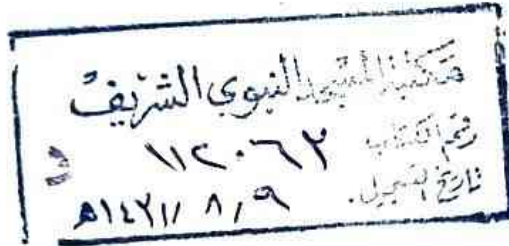 مكتبة المسجد النبوي الشريف
رقم الكتاب ١١٢٠٦٢
تاريخ التسجيل. ١٤٣١/٨/٩هـ